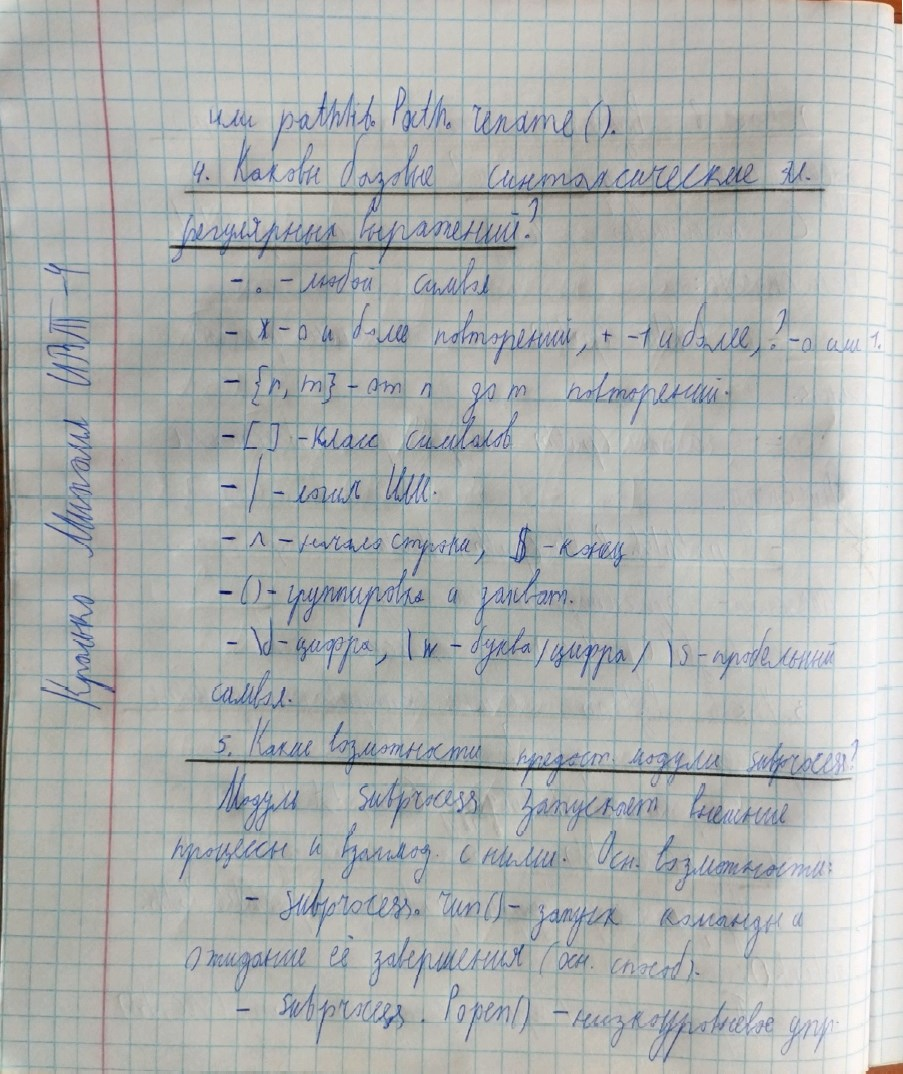 или pathlib. Path. rename().
4. Каковы базовые синтаксические эл.
регулярных выражений?
- . - любой символ
- * - 0 и более повторений, + - 1 и более, ? - 0 или 1.
- {n, m} - от n до m повторений.
- [ ] - класс символов
- | - логич ИЛИ.
- ^ - начало строки, $ - конец
- () - группировка и захват.
- \d - цифра, \w - буква/цифра/ \s - пробельный
символ.
5. Какие возможности предост. модули subprocess?
Модуль subprocess запускает внешние
процессы и взаимод. с ними. Осн. возможности:
- subprocess. run() - запуск команды и
ожидание её завершения (осн. способ).
- subprocess. Popen() - низкоуровневое упр.
Кралько Михаил ИВТ-4